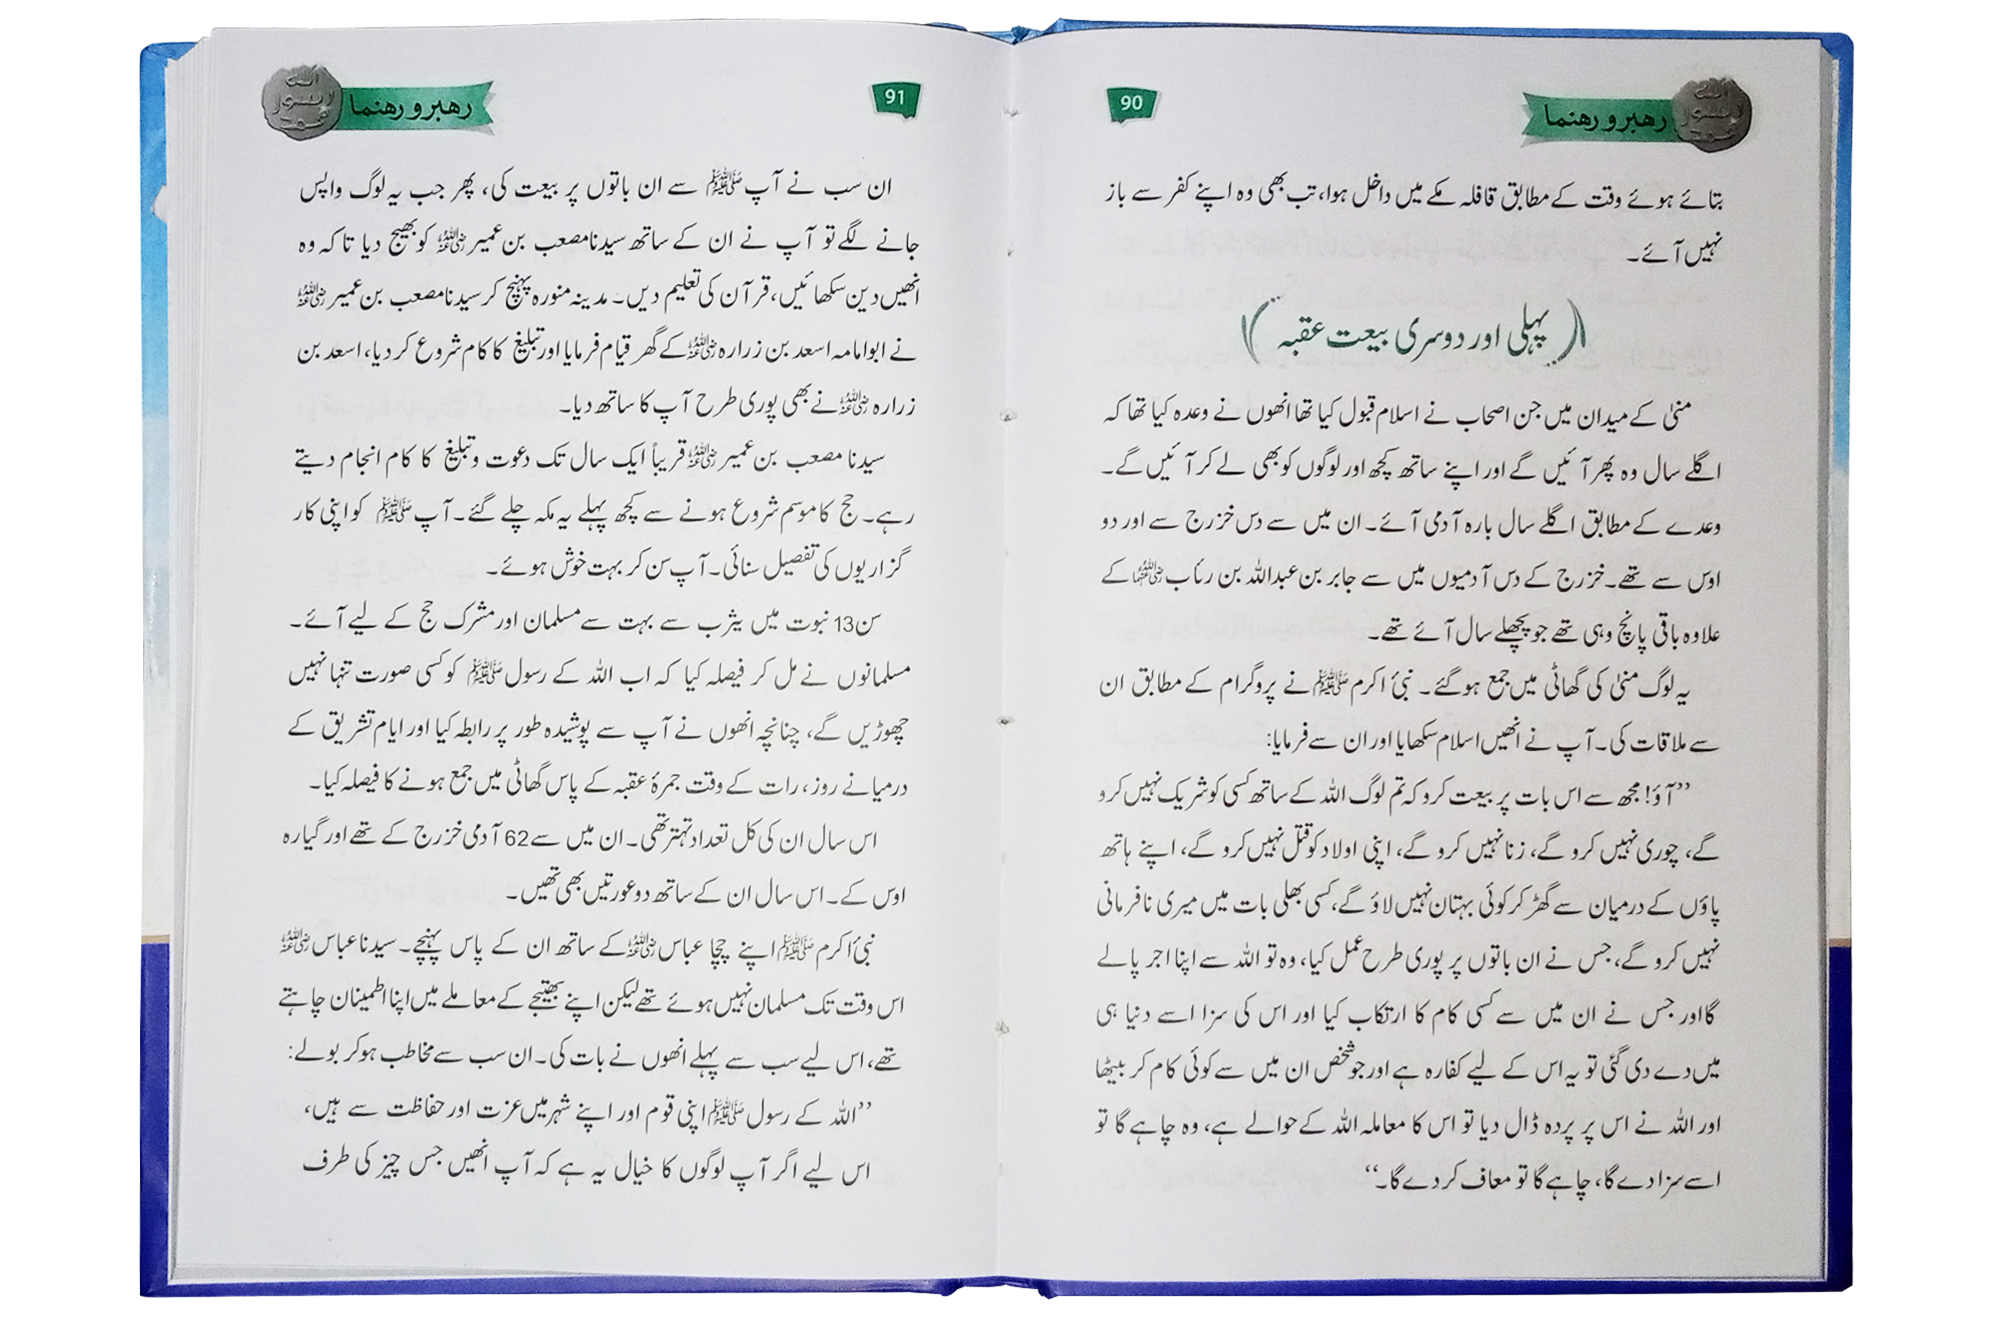 90
رهبر و رهنما
الله
رسول
محمد
بتائے ہوئے وقت کے مطابق قافلہ مکے میں داخل ہوا، تب بھی وہ اپنے کفر سے باز
نہیں آئے۔
پہلی اور دوسری بیعت عقبہ
منیٰ کے میدان میں جن اصحاب نے اسلام قبول کیا تھا انھوں نے وعدہ کیا تھا کہ
اگلے سال وہ پھر آئیں گے اور اپنے ساتھ کچھ اور لوگوں کو بھی لے کر آئیں گے۔
وعدے کے مطابق اگلے سال بارہ آدمی آئے۔ ان میں سے دس خزرج سے اور دو
اوس سے تھے۔ خزرج کے دس آدمیوں میں سے جابر بن عبداللہ بن رئاب رضی اللہ عنہما کے
علاوہ باقی پانچ وہی تھے جو پچھلے سال آئے تھے۔
یہ لوگ منیٰ کی گھاٹی میں جمع ہو گئے۔ نبیٔ اکرم ﷺ نے پروگرام کے مطابق ان
سے ملاقات کی۔ آپ نے انھیں اسلام سکھایا اور ان سے فرمایا:
’’آؤ! مجھ سے اس بات پر بیعت کرو کہ تم لوگ اللہ کے ساتھ کسی کو شریک نہیں کرو
گے، چوری نہیں کرو گے، زنا نہیں کرو گے، اپنی اولاد کو قتل نہیں کرو گے، اپنے ہاتھ
پاؤں کے درمیان سے گھڑ کر کوئی بہتان نہیں لاؤ گے، کسی بھلی بات میں میری نافرمانی
نہیں کرو گے، جس نے ان باتوں پر پوری طرح عمل کیا، وہ تو اللہ سے اپنا اجر پالے
گا اور جس نے ان میں سے کسی کام کا ارتکاب کیا اور اس کی سزا اسے دنیا ہی
میں دے دی گئی تو یہ اس کے لیے کفارہ ہے اور جو شخص ان میں سے کوئی کام کر بیٹھا
اور اللہ نے اس پر پردہ ڈال دیا تو اس کا معاملہ اللہ کے حوالے ہے، وہ چاہے گا تو
اسے سزا دے گا، چاہے گا تو معاف کر دے گا۔‘‘
91
رهبر و رهنما
الله
رسول
محمد
ان سب نے آپ ﷺ سے ان باتوں پر بیعت کی، پھر جب یہ لوگ واپس
جانے لگے تو آپ نے ان کے ساتھ سیدنا مصعب بن عمیر رضی اللہ عنہ کو بھیج دیا تاکہ وہ
انھیں دین سکھائیں، قرآن کی تعلیم دیں۔ مدینہ منورہ پہنچ کر سیدنا مصعب بن عمیر رضی اللہ عنہ
نے ابوامامہ اسعد بن زرارہ رضی اللہ عنہ کے گھر قیام فرمایا اور تبلیغ کا کام شروع کر دیا، اسعد بن
زرارہ رضی اللہ عنہ نے بھی پوری طرح آپ کا ساتھ دیا۔
سیدنا مصعب بن عمیر رضی اللہ عنہ قریباً ایک سال تک دعوت و تبلیغ کا کام انجام دیتے
رہے۔ حج کا موسم شروع ہونے سے کچھ پہلے یہ مکہ چلے گئے۔ آپ ﷺ کو اپنی کار
گزاریوں کی تفصیل سنائی۔ آپ سن کر بہت خوش ہوئے۔
سن 13 نبوت میں یثرب سے بہت سے مسلمان اور مشرک حج کے لیے آئے۔
مسلمانوں نے مل کر فیصلہ کیا کہ اب اللہ کے رسول ﷺ کو کسی صورت تنہا نہیں
چھوڑیں گے، چنانچہ انھوں نے آپ سے پوشیدہ طور پر رابطہ کیا اور ایام تشریق کے
درمیانے روز، رات کے وقت جمرۂ عقبہ کے پاس گھاٹی میں جمع ہونے کا فیصلہ کیا۔
اس سال ان کی کل تعداد تہتر تھی۔ ان میں سے 62 آدمی خزرج کے تھے اور گیارہ
اوس کے۔ اس سال ان کے ساتھ دو عورتیں بھی تھیں۔
نبیٔ اکرم ﷺ اپنے چچا عباس رضی اللہ عنہ کے ساتھ ان کے پاس پہنچے۔ سیدنا عباس رضی اللہ عنہ
اس وقت تک مسلمان نہیں ہوئے تھے لیکن اپنے بھتیجے کے معاملے میں اپنا اطمینان چاہتے
تھے، اس لیے سب سے پہلے انھوں نے بات کی۔ ان سب سے مخاطب ہو کر بولے:
’’اللہ کے رسول ﷺ اپنی قوم اور اپنے شہر میں عزت اور حفاظت سے ہیں،
اس لیے اگر آپ لوگوں کا خیال یہ ہے کہ آپ انھیں جس چیز کی طرف